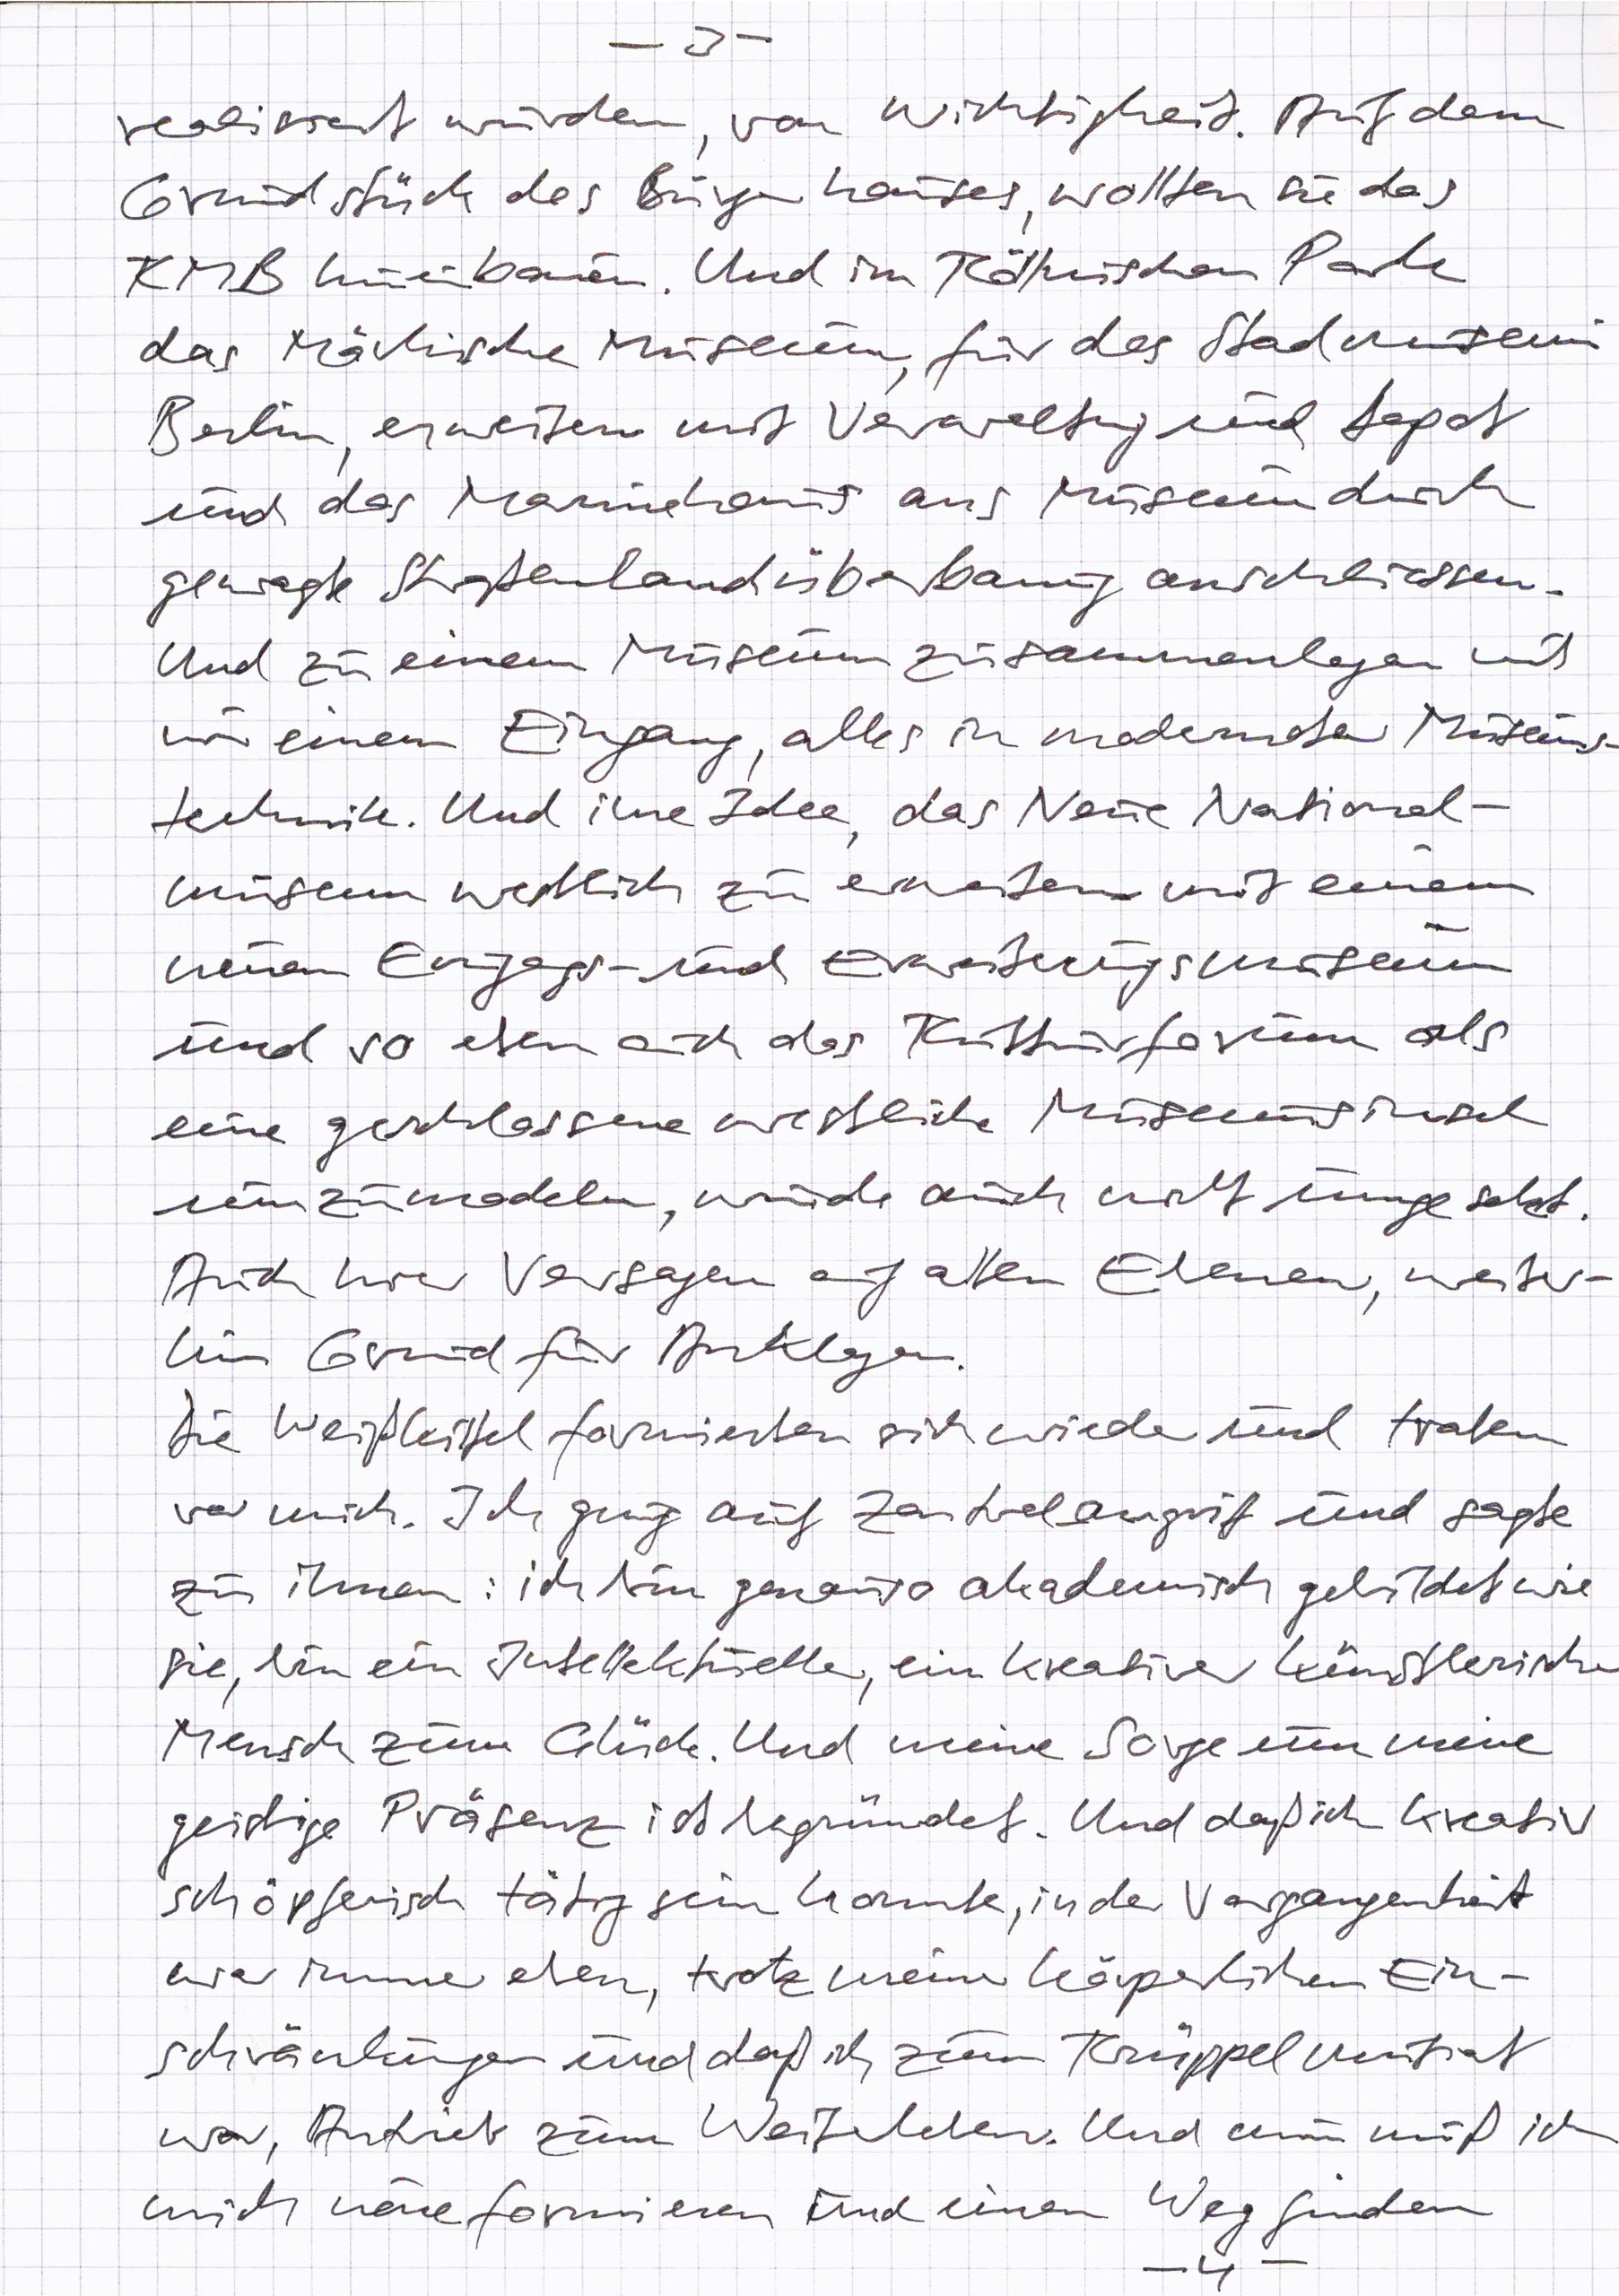 – 3 –
realisiert würden, von Wichtigkeit. Auf dem
Grundstück des Bürgerhauses, wollten sie das
KMB hineinbauen. Und im Köllnischen Park
das Märkische Museum, für das Stadmuseum
Berlin, erweitern mit Verwaltung und Depot
und das Marinehaus ans Museum durch
gewagte Straßenlandüberbauung anschliessen.
Und zu einem Museum zusammenlegen mit
nur einem Eingang, alles in modernster Museums-
technik. Und ihre Idee, das Neue National-
museum westlich zu erweitern mit einem
neuen Eingangs- und Erweiterungsmuseum
und so eben auch das Kulturforum als
eine geschlossene westliche Museumsinsel
umzumodeln, wurde auch nicht umgesetzt.
Auch hier Versagen auf allen Ebenen, weiter-
hin Grund für Anklagen.
Die Weißkittel formierten sich wieder und traten
vor mich. Ich ging auf Zentralangriff und sagte
zu ihnen: ich bin genauso akademisch gebildet wie
sie, bin ein Intellektueller, ein kreativer künstlerischer
Mensch zum Glück. Und meine Sorge um meine
geistige Präsenz ist begründet. Und daß ich kreativ
schöpferisch tätig sein konnte, in der Vergangenheit
war immer eben, trotz meiner körperlichen Ein-
schränkungen und daß ich zum Krüppel mutiert
war, Antrieb zum Weiterleben. Und nun muß ich
mich neue formieren und einen Weg finden
– 4 –